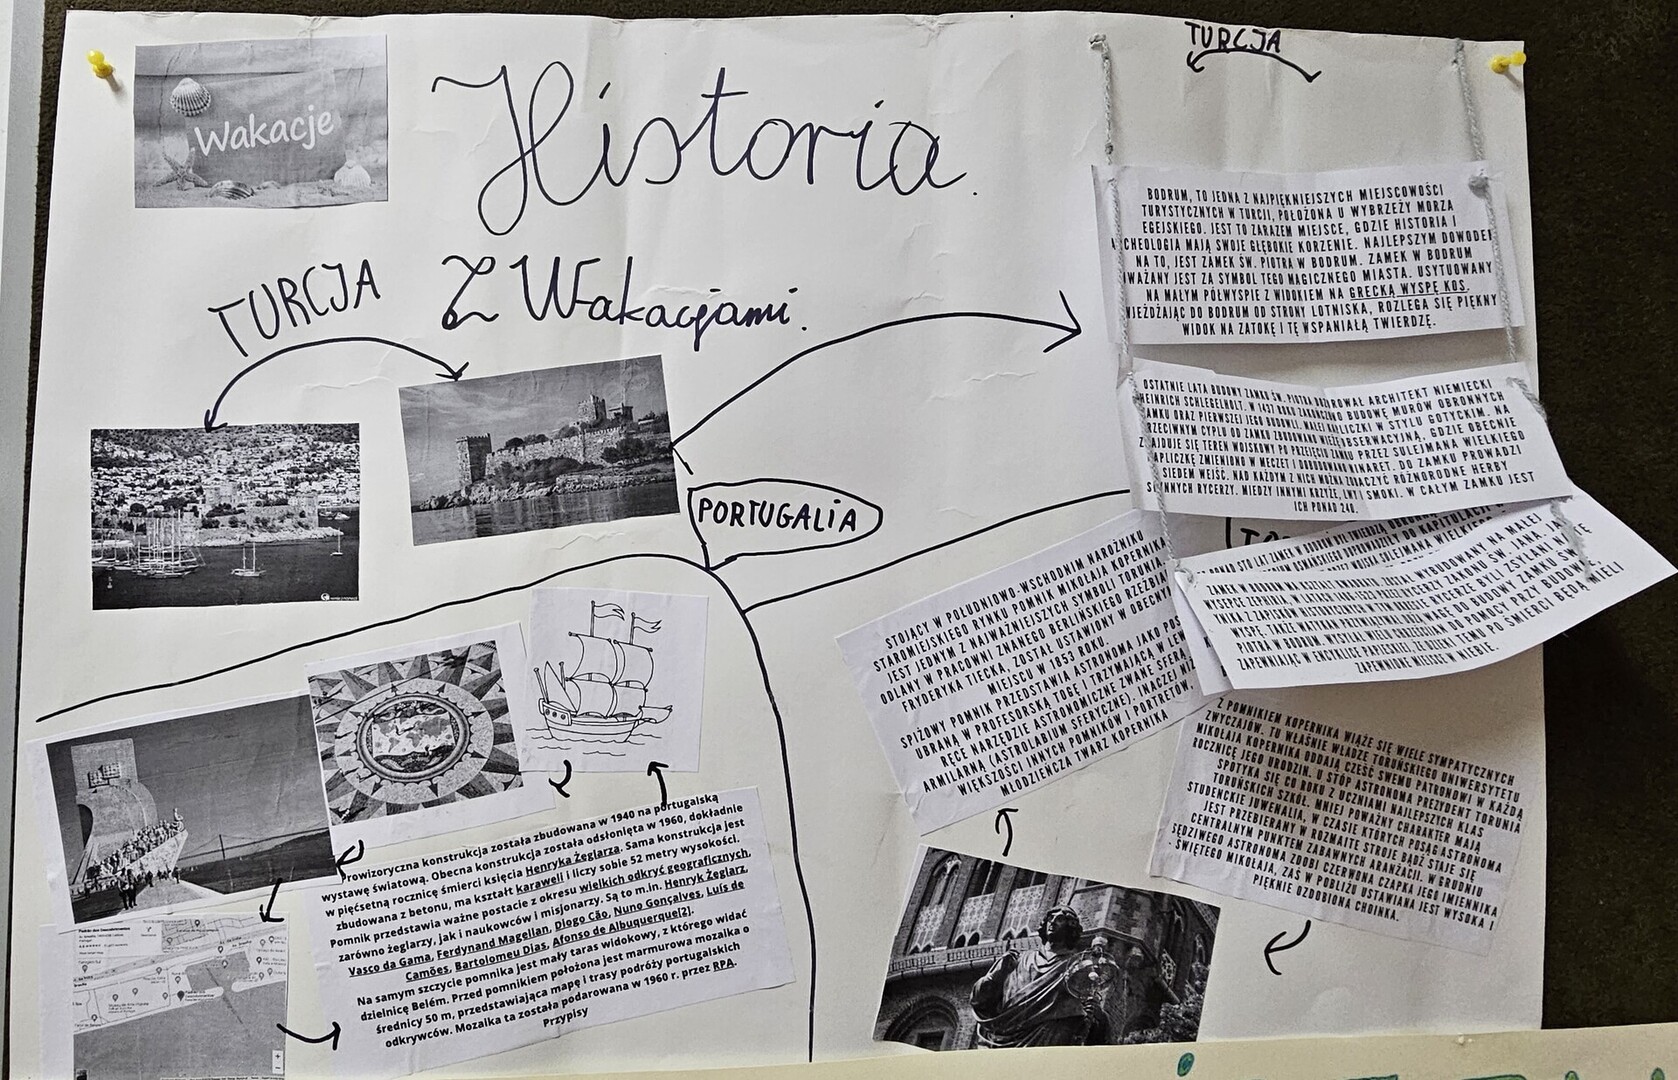 Wakacje
Historia.
Z Wakacjami.
TURCJA
TURCJA
PORTUGALIA
BODRUM, TO JEDNA Z NAJPIĘKNIEJSZYCH MIEJSCOWOŚCI
TURYSTYCZNYCH W TURCJI, POŁOŻONA U WYBRZEŻY MORZA
EGEJSKIEGO. JEST TO ZARAZEM MIEJSCE, GDZIE HISTORIA I
CHEOLOGIA MAJĄ SWOJE GŁĘBOKIE KORZENIE. NAJLEPSZYM DOWODEM
NA TO, JEST ZAMEK ŚW. PIOTRA W BODRUM. ZAMEK W BODRUM
WAŻANY JEST ZA SYMBOL TEGO MAGICZNEGO MIASTA. USYTUOWANY
NA MAŁYM PÓŁWYSPIE Z WIDOKIEM NA GRECKĄ WYSPĘ KOS.
WJEŻDŻAJĄC DO BODRUM OD STRONY LOTNISKA, ROZLEGA SIĘ PIĘKNY
WIDOK NA ZATOKĘ I TĘ WSPANIAŁĄ TWIERDZĘ.
OSTATNIE LATA BUDOWY ZAMKU ŚW. PIOTRA ARCHITEKT NIEMIECKI
HEINRICH SCHLEGELHOLT. W 1437 ROKU ZAKOŃCZONO BUDOWĘ MURÓW OBRONNYCH
ZAMKU ORAZ PIERWSZEJ JEGO BUDOWLI, MAŁEJ KAPLICZKI W STYLU GOTYCKIM. NA
PRZECIWNYM CYPLU OD ZAMKU ZBUDOWANO WIEŻĘ OBSERWACYJNĄ, GDZIE OBECNIE
ZNAJDUJE SIĘ TEREN WOJSKOWY PO PRZEJĘCIU ZAMKU PRZEZ SULEJMANA WIELKIEGO
KAPLICZKĘ ZMIENIONO W MECZET I DOBUDOWANO MINARET. DO ZAMKU PROWADZI
SIEDEM WEJŚĆ. NAD KAŻDYM Z NICH MOŻNA ZOBACZYĆ RÓŻNORODNE HERBY
SŁYNNYCH RYCERZY. MIĘDZY INNYMI KRZYŻE, LWY I SMOKI. W CAŁYM ZAMKU JEST
ICH PONAD 240.
PONAD STO LAT ZAMEK W BODRUM BYŁ TWIERDZĄ
DO KAPITULACJI
SULEJMANA WIELKIEGO
ZAMEK W BODRUM NA KSZTAŁT KWADRATU, ZOSTAŁ WYBUDOWANY NA MAŁEJ
WYSEPCE ZEPHIRIA. W LATACH 1406-1523 PRZEZ RYCERZY ZAKONU ŚW. JANA. JA
Z ZAPISKÓW HISTORYCZNYCH W TYM OKRESIE RYCERZE BYLI ZSYŁANI NA TĘ
WYSPĘ. TAKŻE WATYKAN PRZYWIĄZYWAŁ DUŻĄ WAGĘ DO BUDOWY ZAMKU ŚW.
PIOTRA W BODRUM. WYSYŁAŁ WIELU CHRZEŚCIJAN DO POMOCY PRZY BUDOWIE
ZAPEWNIAJĄC W ENCYKLICE PAPIESKIEJ, ŻE DZIĘKI TEMU PO ŚMIERCI BĘDĄ MIELI
ZAPEWNIONE MIEJSCE W NIEBIE.
STOJĄCY W POŁUDNIOWO-WSCHODNIM NAROŻNIKU
STAROMIEJSKIEGO RYNKU POMNIK MIKOŁAJA KOPERNIKA
JEST JEDNYM Z NAJWAŻNIEJSZYCH SYMBOLI TORUNIA.
ODLANY W PRACOWNI ZNANEGO BERLIŃSKIEGO RZEŹBIA
FRYDERYKA TIECKA, ZOSTAŁ USTAWIONY W OBECNYM
MIEJSCU W 1853 ROKU.
SPIŻOWY POMNIK PRZEDSTAWIA ASTRONOMA JAKO POS
UBRANĄ W PROFESORSKĄ TOGĘ I TRZYMAJĄCĄ W LEW
RĘCE NARZĘDZIE ASTRONOMICZNE ZWANE SFERĄ
ARMILARNĄ (ASTROLABIUM SFERYCZNE). INACZEJ NIŻ
WIĘKSZOŚCI INNYCH POMNIKÓW I PORTRETÓW,
MŁODZIEŃCZA TWARZ KOPERNIKA
Z POMNIKIEM KOPERNIKA WIĄŻE SIĘ WIELE SYMPATYCZNYCH
ZWYCZAJÓW. TU WŁAŚNIE WŁADZE TORUŃSKIEGO UNIWERSYTETU
MIKOŁAJA KOPERNIKA ODDAJĄ CZEŚĆ SWEMU PATRONOWI W KAŻDĄ
ROCZNICĘ JEGO URODZIN. U STÓP ASTRONOMA PREZYDENT TORUNIA
SPOTYKA SIĘ CO ROKU Z UCZNIAMI NAJLEPSZYCH KLAS
TORUŃSKICH SZKÓŁ. MNIEJ POWAŻNY CHARAKTER MAJĄ
STUDENCKIE JUWENALIA, W CZASIE KTÓRYCH POSĄG ASTRONOMA
JEST PRZEBIERANY W ROZMAITE STROJE BĄDŹ STAJE SIĘ
CENTRALNYM PUNKTEM ZABAWNYCH ARANŻACJI. W GRUDNIU
SĘDZIWEGO ASTRONOMA ZDOBI CZERWONA CZAPKA JEGO IMIENNIKA
- ŚWIĘTEGO MIKOŁAJA, ZAŚ W POBLIŻU USTAWIANA JEST WYSOKA I
PIĘKNIE OZDOBIONA CHOINKA.
Prowizoryczna konstrukcja została zbudowana w 1940 na portugalską
wystawę światową. Obecna konstrukcja została odsłonięta w 1960, dokładnie
w pięćsetną rocznicę śmierci księcia Henryka Żeglarza. Sama konstrukcja jest
zbudowana z betonu, ma kształt karaweli i liczy sobie 52 metry wysokości.
Pomnik przedstawia ważne postacie z okresu wielkich odkryć geograficznych,
zarówno żeglarzy, jak i naukowców i misjonarzy. Są to m.in. Henryk Żeglarz,
Vasco da Gama, Ferdynand Magellan, Diogo Cão, Nuno Gonçalves, Luís de
Camões, Bartolomeu Dias, Afonso de Albuquerque[2].
Na samym szczycie pomnika jest mały taras widokowy, z którego widać
dzielnicę Belém. Przed pomnikiem położona jest marmurowa mozaika o
średnicy 50 m, przedstawiająca mapę i trasy podróży portugalskich
odkrywców. Mozaika ta została podarowana w 1960 r. przez RPA.
Przypisy